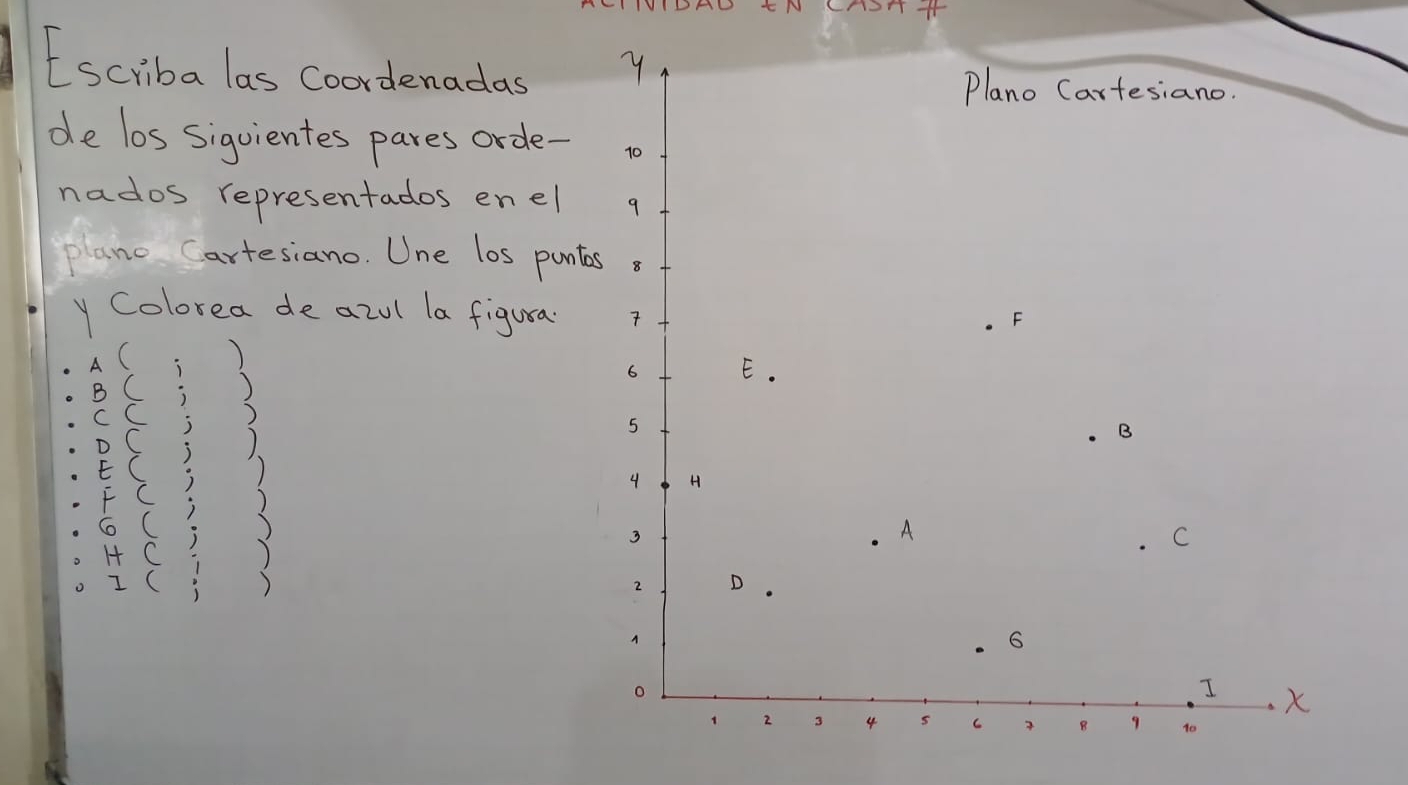 ACTIVIDAD EN CASA #
Escriba las Coordenadas
de los Siguientes pares orde-
nados representados en el
plano Cartesiano. Une los puntos
y Colorea de azul la figura.
. A ( ; )
. B ( ; )
. C ( ; )
. D ( ; )
. E ( ; )
. F ( ; )
. G ( ; )
. H ( ; )
. I ( ; )
Plano Cartesiano.
y
10
9
8
7
F
6
E
5
B
4
H
3
A
C
2
D
1
G
0
I
X
1 2 3 4 5 6 7 8 9 10